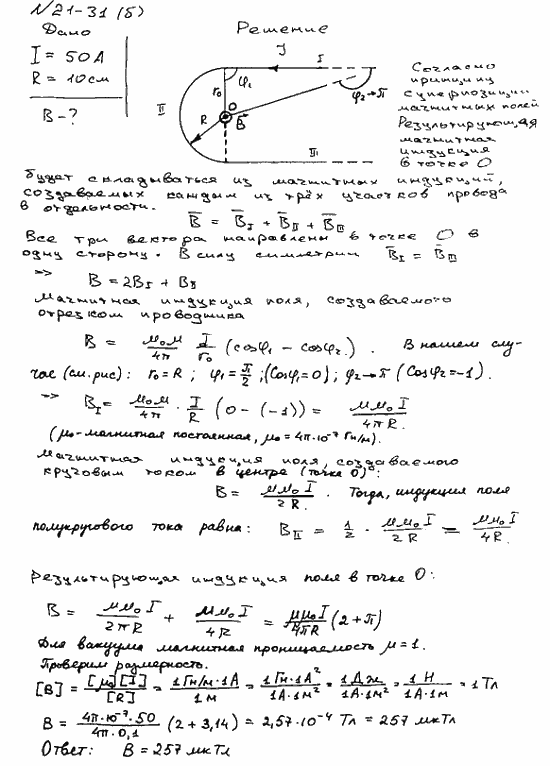 №21-31 (б)
Дано
I = 50А
R = 10см
B-?
Решение
I
I
r₀
φ₁
φ₂→π
II
R
O
B̄
III
Согласно
принципу
суперпозиции
магнитных полей
Результирующая
магнитная
индукция
в точке О
будет складываться из магнитных индукций,
создаваемых каждым из трёх участков провода
в отдельности.
B̄ = B̄_I + B̄_II + B̄_III
Все три вектора направлены в точке О в
одну сторону. В силу симметрии B̄_I = B̄_III
=> 
B = 2B_I + B_II
Магнитная индукция поля, создаваемого
отрезком проводника
B = μ₀μ/4π · I/r₀ (cosφ₁ - cosφ₂). В нашем слу-
чае (см. рис): r₀ = R; φ₁ = π/2; (cosφ₁=0); φ₂→π (cosφ₂=-1).
=> B_I = μ₀μ/4π · I/R (0-(-1)) = μμ₀I/4πR.
(μ₀-магнитная постоянная, μ₀ = 4π·10⁻⁷ Гн/м).
Магнитная индукция поля, создаваемого
круговым током в центре (точке О):
B = μμ₀I/2R. Тогда, индукция поля
полукругового тока равна: B_II = 1/2 · μμ₀I/2R = μμ₀I/4R.
Результирующая индукция поля в точке О:
B = μμ₀I/2πR + μμ₀I/4R = μμ₀I/4πR (2+π)
Для вакуума магнитная проницаемость μ=1.
Проверим размерность.
[B] = [μ₀][I]/[R] = 1Гн/м·1А/1м = 1Гн·1А²/1А·1м² = 1Дж/1А·1м² = 1Н/1А·1м = 1Тл
B = 4π·10⁻⁷·50/4π·0,1 (2+3,14) = 2,57·10⁻⁴ Тл = 257 мкТл
Ответ: B = 257 мкТл